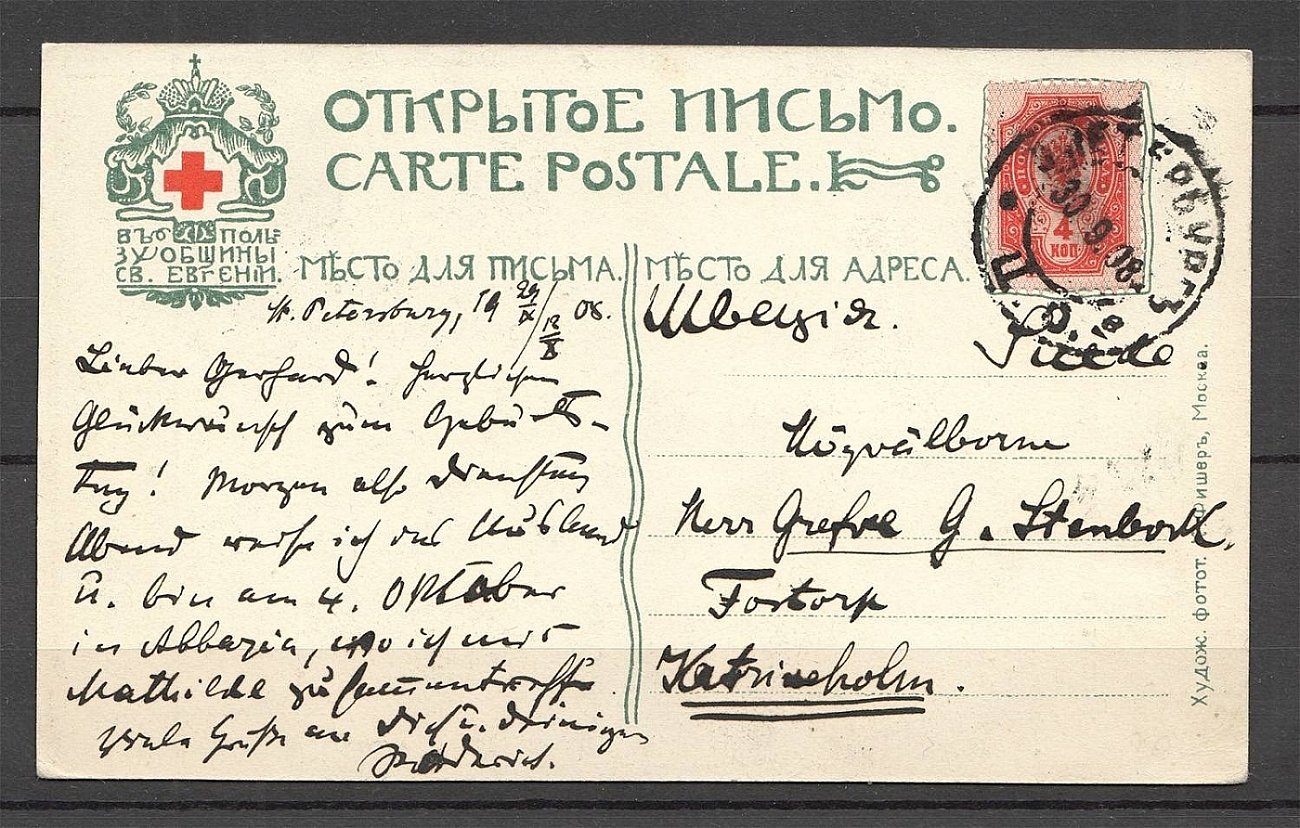 ОТКРЫТОЕ ПИСЬМО.
CARTE POSTALE.
ВЪ ПОЛЬ
ЗУ ОБЩИНЫ
СВ. ЕВГЕНІИ.
МѢСТО ДЛЯ ПИСЬМА.
МѢСТО ДЛЯ АДРЕСА.
4
КОП
С.П.ПЕТЕРБУРГЪ
30.9.08
St. Petersburg, 19 29/IX / 12/X 08.
Lieber Gerhard! Herzlichen
Glückwünsch zum Gebürts-
tag! Morgen also Dienstag
Abend reise ich ins Ausland
u. bin am 4. Oktober
in Abbazia, wo ich mit
Mathilde züsammentreffe.
Viele Grüße an Dich u. Deinigen
Швеція.
Suede
Herr Grefve G. Stenbock,
Fortorp
Katrineholm.
Худож. фотот. Фишеръ, Москва.